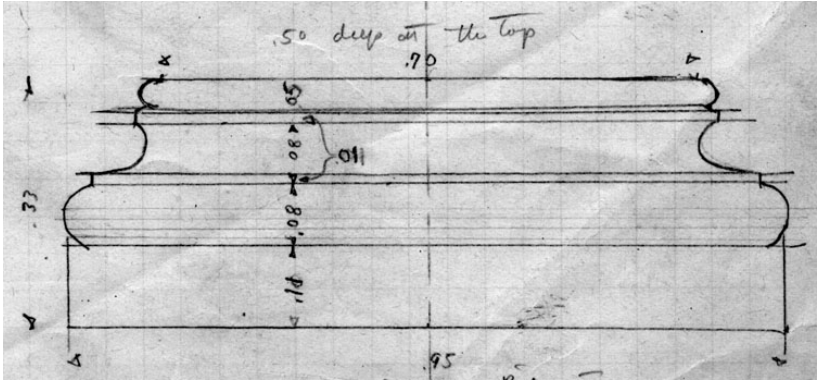 .50 deep at the top
.70
.05
.08
.011
.33
.08
.95